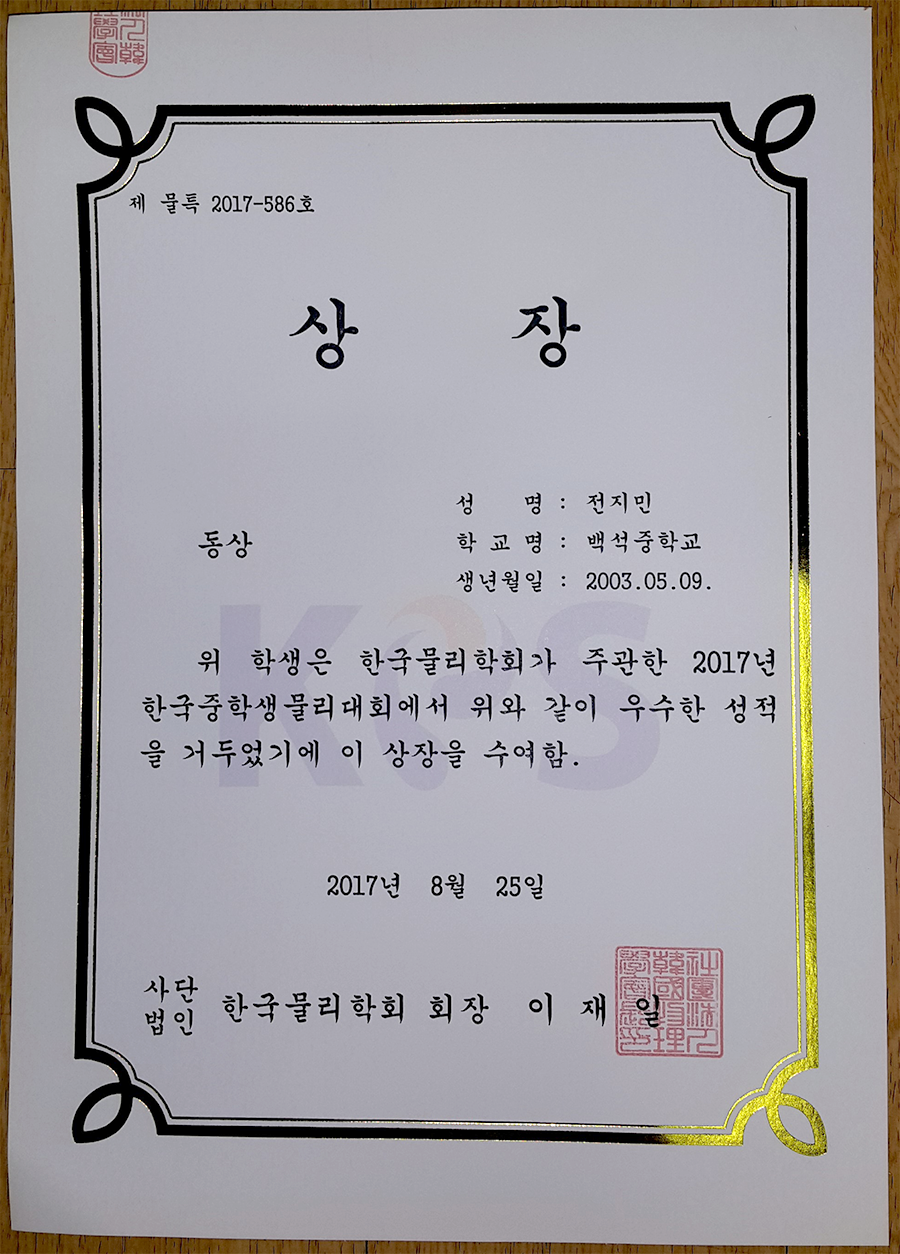 제 물특 2017-586호
상 장
성 명 : 전지민
동상
학 교 명 : 백석중학교
생년월일 : 2003.05.09.
KPS
위 학생은 한국물리학회가 주관한 2017년
한국중학생물리대회에서 위와 같이 우수한 성적
을 거두었기에 이 상장을 수여함.
2017년 8월 25일
사단
법인 한국물리학회 회장 이 재 일